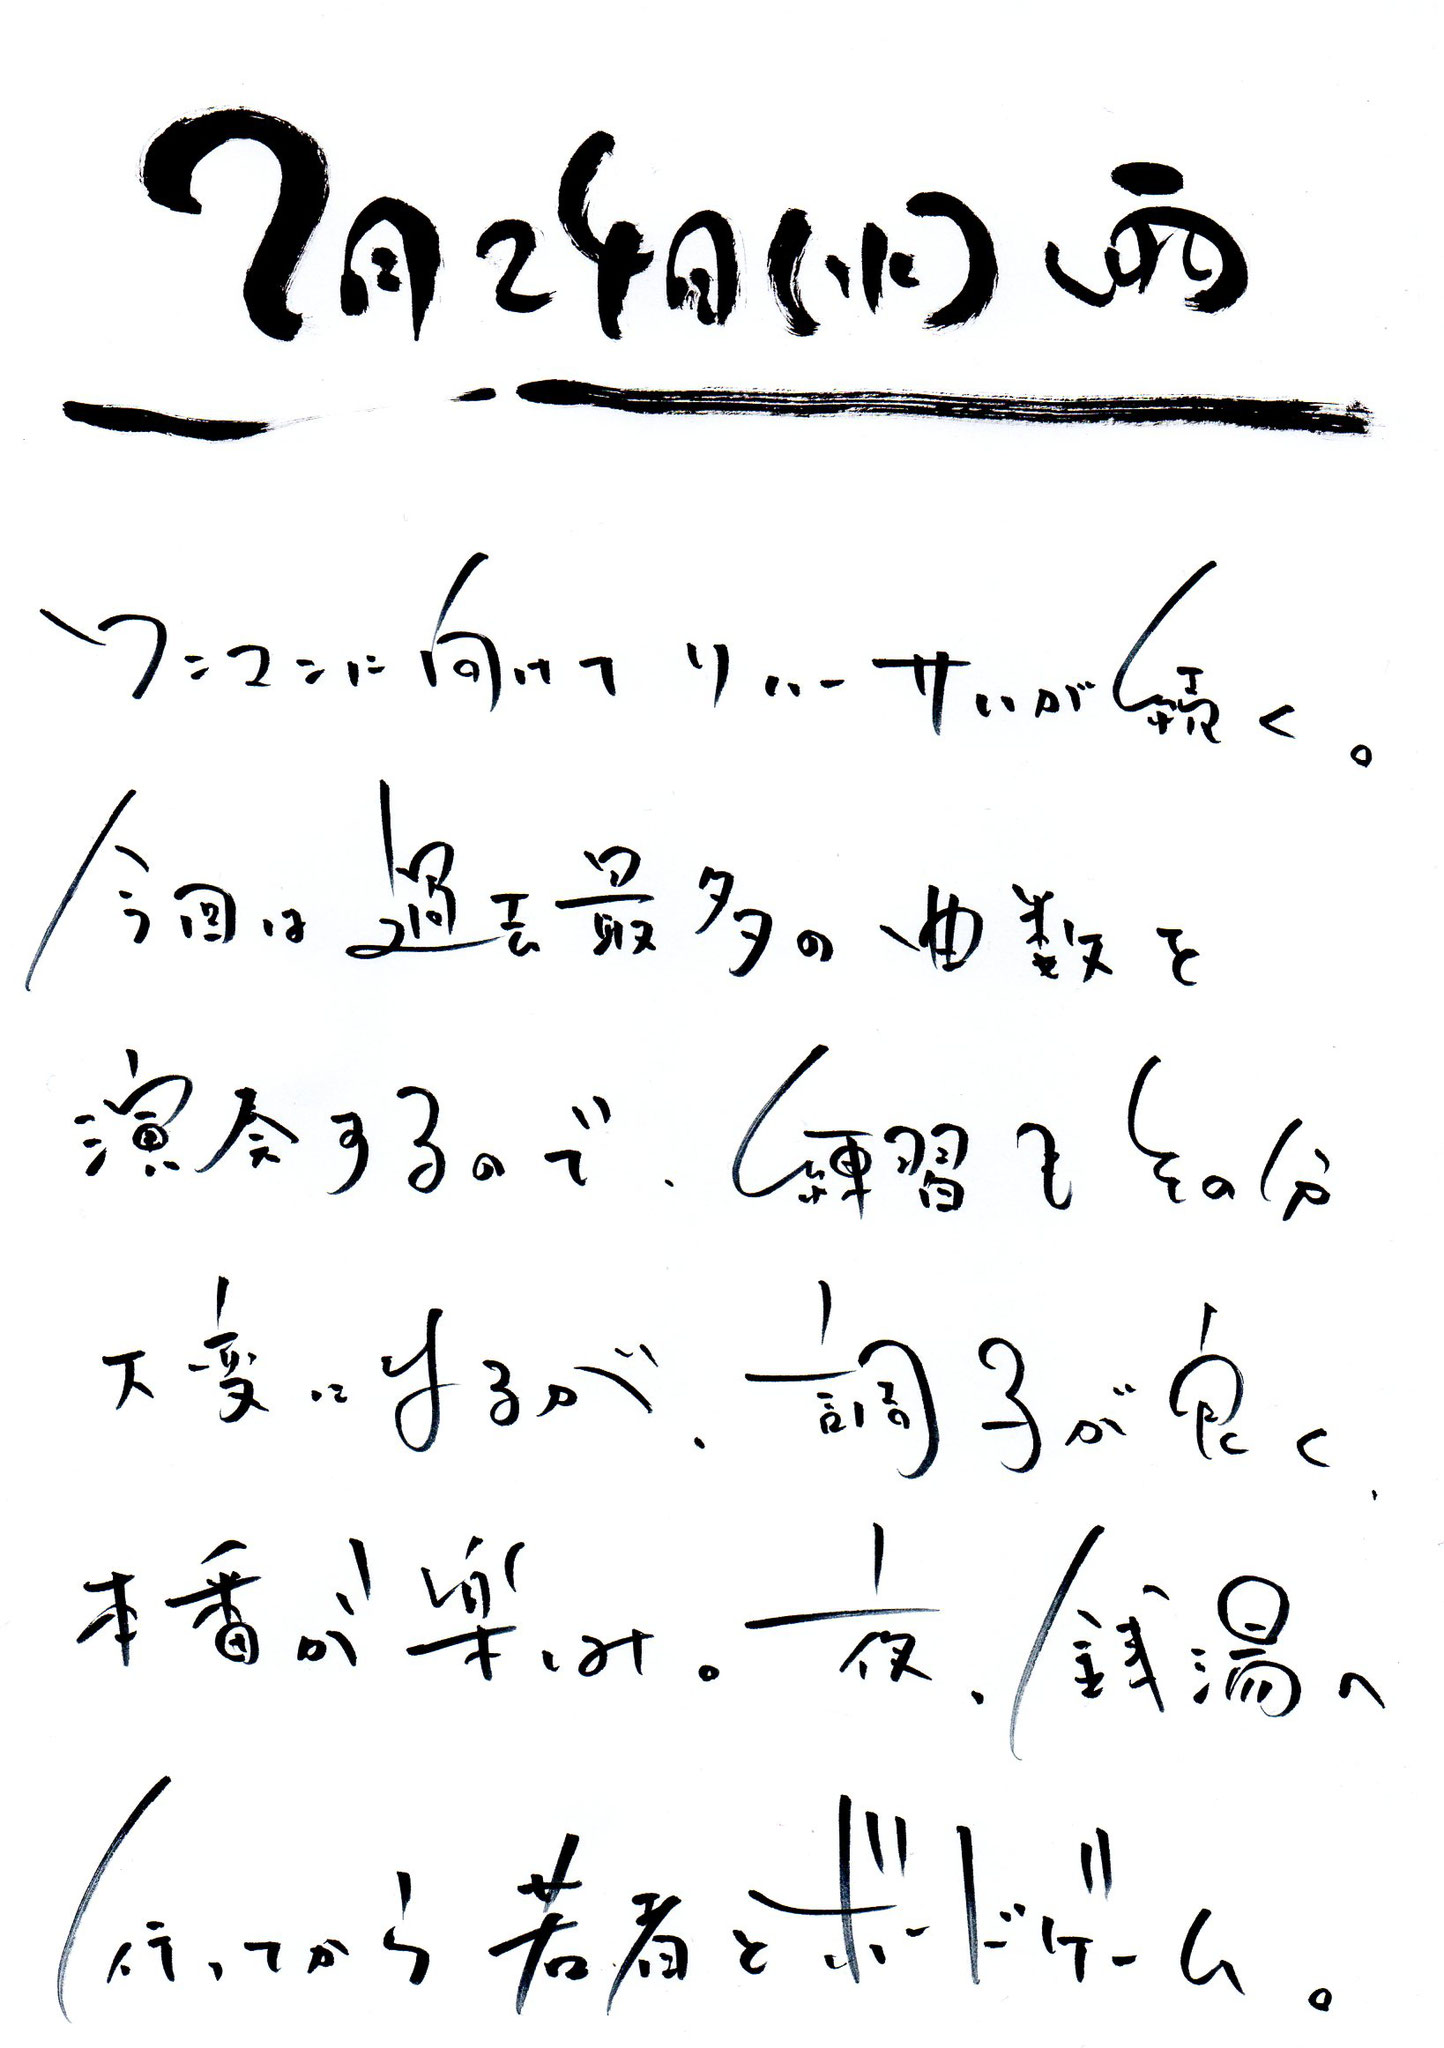 7月24日(水)雨
ワンマンに向けてリハーサルが続く。
今回は過去最多の曲数を
演奏するので、練習もその分
大変にはなるが、調子が良く、
本番が楽しみ。夜、銭湯へ
行ってから若者とボードゲーム。